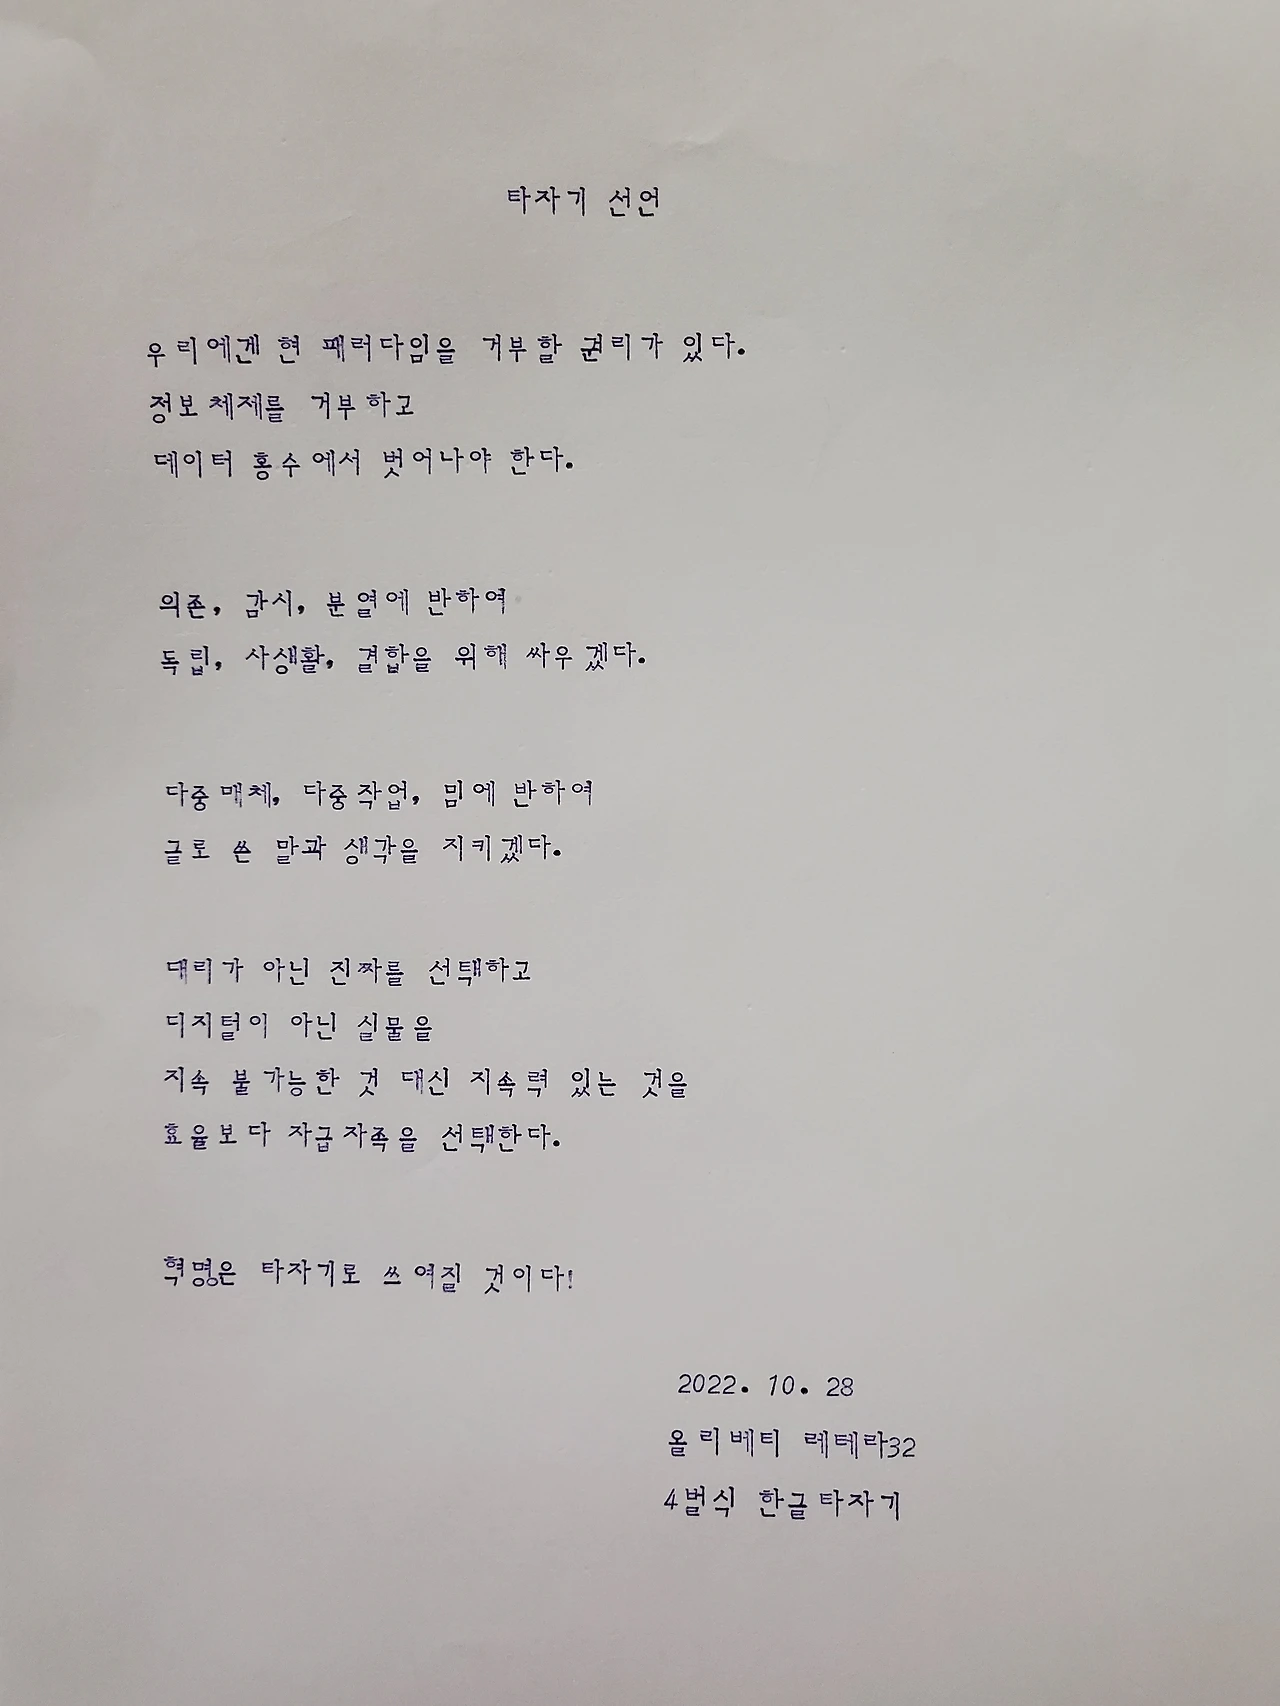 타자기 선언
우리에겐 현 패러다임을 거부할 권리가 있다.
정보체제를 거부하고
데이터 홍수에서 벗어나야 한다.
의존, 감시, 분열에 반하여
독립, 사생활, 결합을 위해 싸우겠다.
다중매체, 다중작업, 밈에 반하여
글로 쓴 말과 생각을 지키겠다.
대리가 아닌 진짜를 선택하고
디지털이 아닌 실물을
지속 불가능한 것 대신 지속력 있는 것을
효율보다 자급자족을 선택한다.
혁명은 타자기로 쓰여질 것이다!
2022. 10. 28
올리베티 레테라32
4벌식 한글타자기